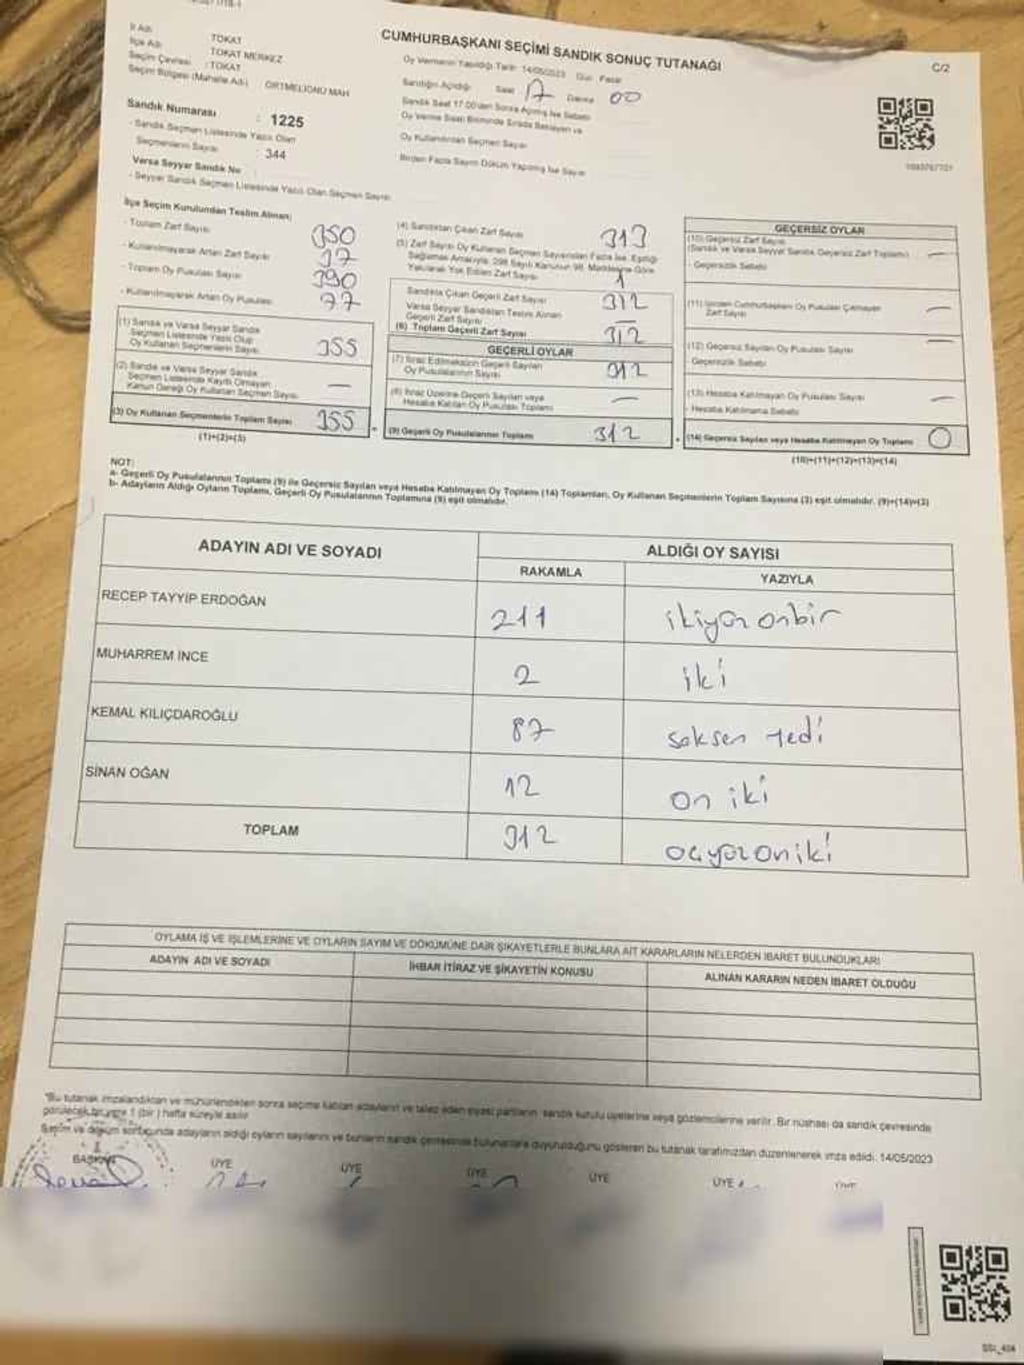 İl Adı TOKAT
İlçe Adı TOKAT MERKEZ
Seçim Çevresi : TOKAT
Seçim Bölgesi (Mahalle Adı) ORTMELİONU MAH
CUMHURBAŞKANI SEÇİMİ SANDIK SONUÇ TUTANAĞI
C/2
Oy Vermenin Yapıldığı Tarih: 14/05/2023 Gün: Pazar
Sandığın Açıldığı Saat 17 Dakika 00
Sandık Saat 17.00'den Sonra Açılmış İse Sebebi
Oy Verme Saati Bitiminde Sırada Bekleyen ve
Oy Kullandırılan Seçmen Sayısı
Birden Fazla Sayım Döküm Yapılmış İse Sayısı
Sandık Numarası : 1225
- Sandık Seçmen Listesinde Yazılı Olan
Seçmenlerin Sayısı : 344
Varsa Seyyar Sandık No
- Seyyar Sandık Seçmen Listesinde Yazılı Olan Seçmen Sayısı
İlçe Seçim Kurulundan Teslim Alınan;
- Toplam Zarf Sayısı 350
- Kullanılmayarak Artan Zarf Sayısı 37
- Toplam Oy Pusulası Sayısı 390
- Kullanılmayarak Artan Oy Pusulası 77
(1) Sandık ve Varsa Seyyar Sandık
Seçmen Listesinde Yazılı Olup
Oy Kullanan Seçmenlerin Sayısı 355
(2) Sandık ve Varsa Seyyar Sandık
Seçmen Listesinde Kayıtlı Olmayan
Kanun Gereği Oy Kullanan Seçmen Sayısı —
(3) Oy Kullanan Seçmenlerin Toplam Sayısı 355
(1)+(2)=(3)
(4) Sandıktan Çıkan Zarf Sayısı 313
(5) Zarf Sayısı Oy Kullanan Seçmen Sayısından Fazla İse, Eşitliği
Sağlamak Amacıyla, 298 Sayılı Kanunun 98. Maddesine Göre
Yakılarak Yok Edilen Zarf Sayısı 1
Sandıkta Çıkan Geçerli Zarf Sayısı 312
Varsa Seyyar Sandıktan Teslim Alınan
Geçerli Zarf Sayısı —
(6) Toplam Geçerli Zarf Sayısı 312
GEÇERLİ OYLAR
(7) İtiraz Edilmeksizin Geçerli Sayılan
Oy Pusulalarının Sayısı 312
(8) İtiraz Üzerine Geçerli Sayılan veya
Hesaba Katılan Oy Pusulası Toplamı —
(9) Geçerli Oy Pusulalarının Toplamı 312
GEÇERSİZ OYLAR
(10) Geçersiz Zarf Sayısı
(Sandık ve Varsa Seyyar Sandık Geçersiz Zarf Toplamı) —
- Geçersizlik Sebebi
(11) İçinden Cumhurbaşkanı Oy Pusulası Çıkmayan
Zarf Sayısı —
(12) Geçersiz Sayılan Oy Pusulası Sayısı —
Geçersizlik Sebebi
(13) Hesaba Katılmayan Oy Pusulası Sayısı —
- Hesaba Katılmama Sebebi
(14) Geçersiz Sayılan veya Hesaba Katılmayan Oy Toplamı 0
(10)+(11)+(12)+(13)=(14)
NOT:
a- Geçerli Oy Pusulalarının Toplamı (9) ile Geçersiz Sayılan veya Hesaba Katılmayan Oy Toplamı (14) Toplamları, Oy Kullanan Seçmenlerin Toplam Sayısına (3) eşit olmalıdır. (9)+(14)=(3)
b- Adayların Aldığı Oyların Toplamı, Geçerli Oy Pusulalarının Toplamına (9) eşit olmalıdır.
ADAYIN ADI VE SOYADI
ALDIĞI OY SAYISI
RAKAMLA YAZIYLA
RECEP TAYYİP ERDOĞAN 211 ikiyüz onbir
MUHARREM İNCE 2 iki
KEMAL KILIÇDAROĞLU 87 seksen yedi
SİNAN OĞAN 12 on iki
TOPLAM 312 üçyüzoniki
OYLAMA İŞ VE İŞLEMLERİNE VE OYLARIN SAYIM VE DÖKÜMÜNE DAİR ŞİKAYETLERLE BUNLARA AİT KARARLARIN NELERDEN İBARET BULUNDUKLARI
ADAYIN ADI VE SOYADI İHBAR İTİRAZ VE ŞİKAYETİN KONUSU ALINAN KARARIN NEDEN İBARET OLDUĞU
*Bu tutanak imzalandıktan ve mühürlendikten sonra seçime katılan adayların ve talep eden siyasi partilerin sandık kurulu üyelerine veya gözlemcilerine verilir. Bir nüshası da sandık çevresinde
görülecek bir yere 1 (bir) hafta süreyle asılır.
Seçim ve döküm sonucunda adayların aldığı oyların sayılarını ve bunların sandık çevresinde bulunanlara duyurulduğunu gösteren bu tutanak tarafımızdan düzenlenerek imza edildi. 14/05/2023
BAŞKAN ÜYE ÜYE ÜYE ÜYE ÜYE ÜYE